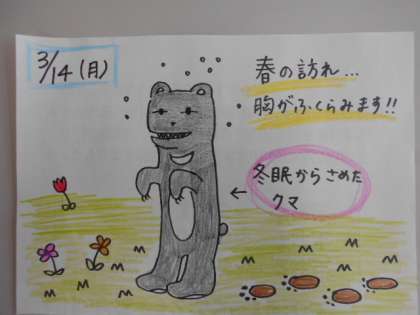 3/14(月)
春の訪れ...
胸がふくらみます!!
冬眠からさめた
クマ